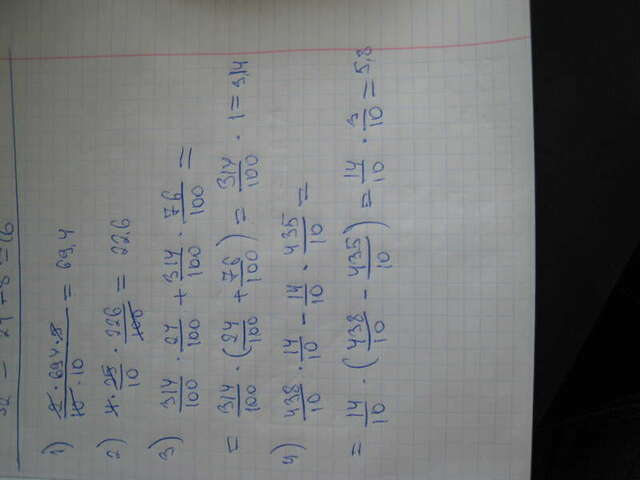 1) 694 / 10 · 10 = 69,4
2) 4 · 25 / 10 · 226 / 100 = 22,6
3) 314/100 · 24/100 + 314/100 · 76/100 =
= 314/100 · (24/100 + 76/100) = 314/100 · 1 = 3,14
4) 438/10 · 14/10 - 14/10 · 435/10 =
= 14/10 · (438/10 - 435/10) = 14/10 · 3/10 = 5,8